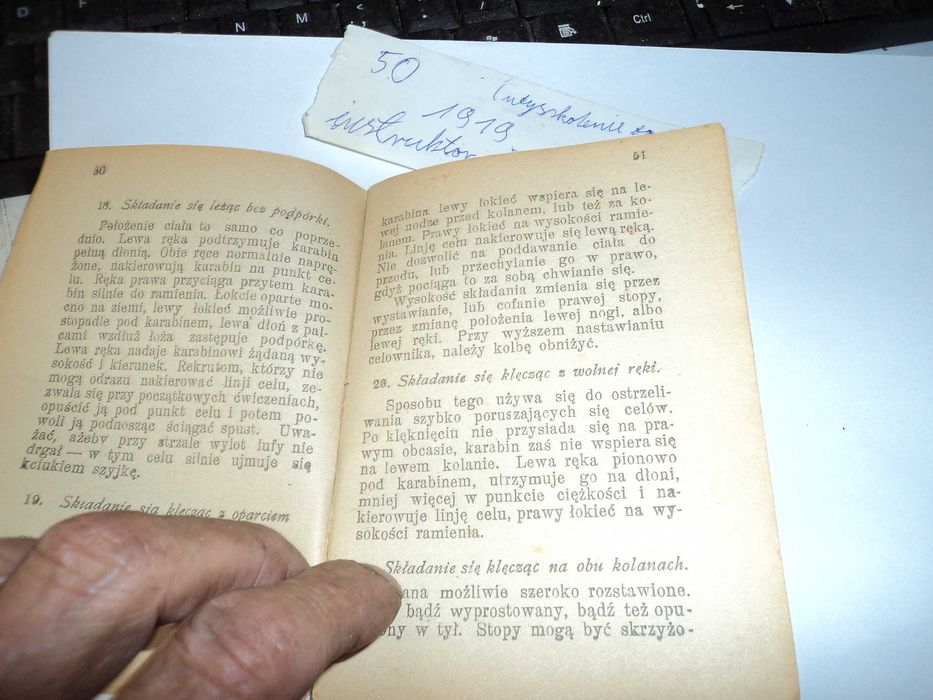 N
M
Ctrl
50
1919
instruktor
50
18. Składanie się leżąc bez podpórki.
Położenie ciała to samo co poprze-
dnio. Lewa ręka podtrzymuje karabin
pełną dłonią. Obie ręce normalnie naprę-
żone, nakierowują karabin na punkt ce-
lu. Ręka prawa przyciąga przytem kara-
bin silnie do ramienia. Łokcie oparte mo-
cno na ziemi, lewy łokieć możliwie pro-
stopadle pod karabinem, lewa dłoń z pal-
cami wzdłuż łoża zastępuje podpórkę.
Lewa ręka nadaje karabinowi żądaną wy-
sokość i kierunek. Rekrutom, którzy nie
mogą odrazu nakierować linji celu, ze-
zwala się przy początkowych ćwiczeniach,
opuścić ją pod punkt celu i potem po-
woli ją podnosząc ściągać spust. Uwa-
żać, ażeby przy strzale wylot lufy nie
drgał — w tym celu silnie ujmuje się
kciukiem szyjkę.
19. Składanie się klęcząc z oparciem
51
karabina lewy łokieć wspiera się na le-
wej nodze przed kolanem, lub też za ko-
lanem. Prawy łokieć na wysokości ramie-
nia. Linję celu nakierowuje się lewą ręką.
Nie dozwolić na poddawanie ciała do
przodu, lub przechylanie go w prawo,
gdyż pociąga to za sobą chwianie się.
Wysokość składania zmienia się przez
wystawianie, lub cofanie prawej stopy,
przez zmianę położenia lewej nogi, albo
lewej ręki. Przy wyższem nastawianiu
celownika, należy kolbę obniżyć.
20. Składanie się klęcząc z wolnej ręki.
Sposobu tego używa się do ostrzeli-
wania szybko poruszających się celów.
Po klęknięciu nie przysiada się na pra-
wym obcasie, karabin zaś nie wspiera się
na lewem kolanie. Lewa ręka pionowo
pod karabinem, utrzymuje go na dłoni,
mniej więcej w punkcie ciężkości i na-
kierowuje linję celu, prawy łokieć na wy-
sokości ramienia.
Składanie się klęcząc na obu kolanach.
ana możliwie szeroko rozstawione.
bądź wyprostowany, bądź też opu-
ny w tył. Stopy mogą być skrzyżo-